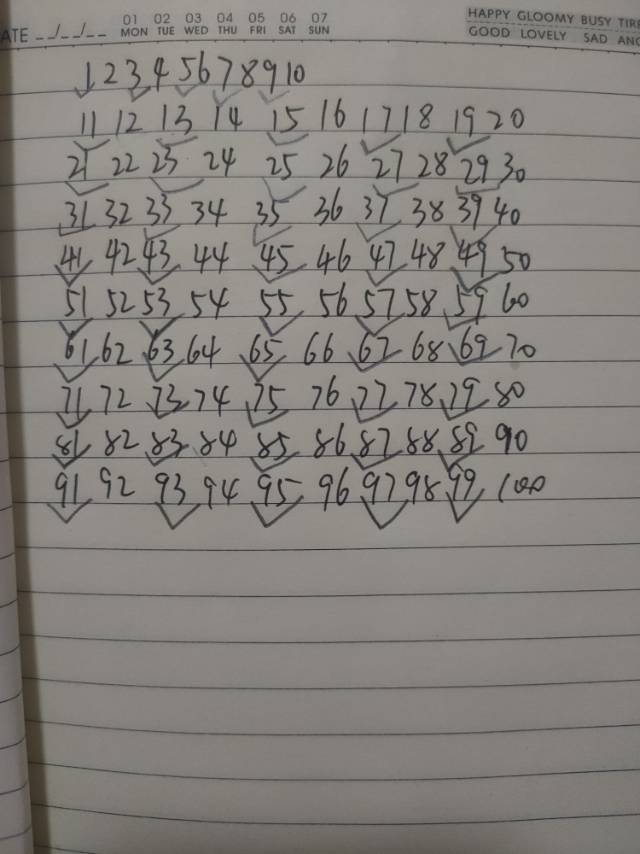 ATE __/__/__ 01 02 03 04 05 06 07 HAPPY GLOOMY BUSY
MON TUE WED THU FRI SAT SUN GOOD LOVELY SAD
1 2 3 4 5 6 7 8 9 10
11 12 13 14 15 16 17 18 19 20
21 22 23 24 25 26 27 28 29 30
31 32 33 34 35 36 37 38 39 40
41 42 43 44 45 46 47 48 49 50
51 52 53 54 55 56 57 58 59 60
61 62 63 64 65 66 67 68 69 70
71 72 73 74 75 76 77 78 79 80
81 82 83 84 85 86 87 88 89 90
91 92 93 94 95 96 97 98 99 100